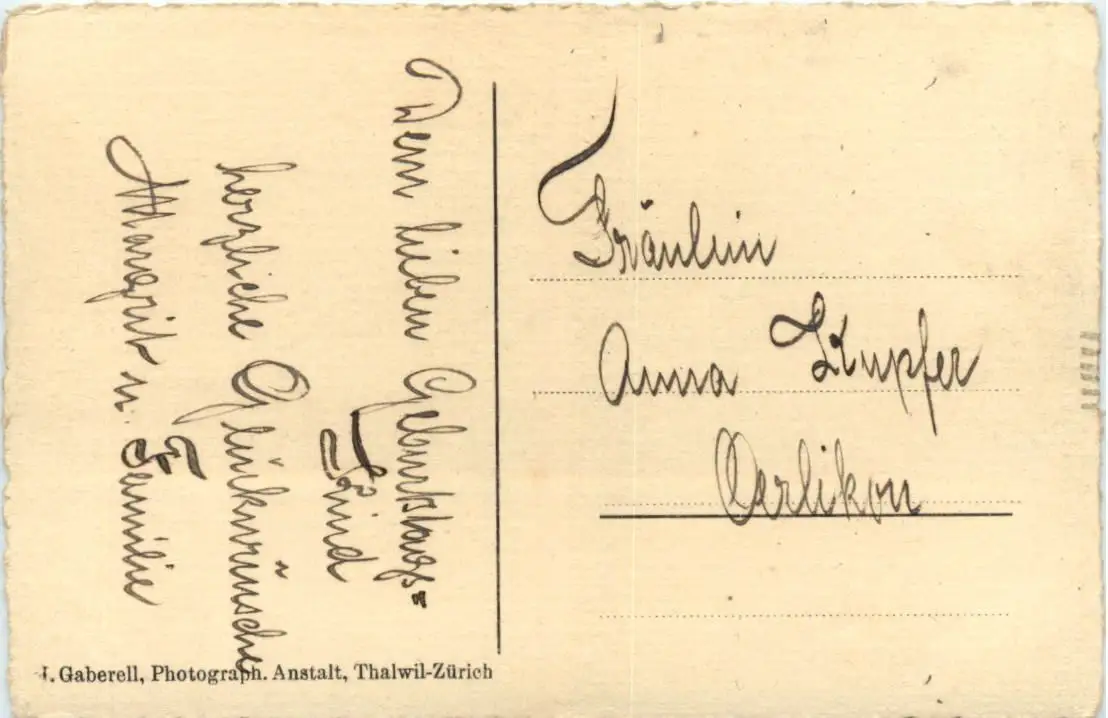 Dem lieben Geburtstags=
Kind
herzliche Glückwünsche
Margrit u. Familie
Fräulein
Anna Kupfer
Oerlikon
J. Gaberell, Photograph. Anstalt, Thalwil-Zürich